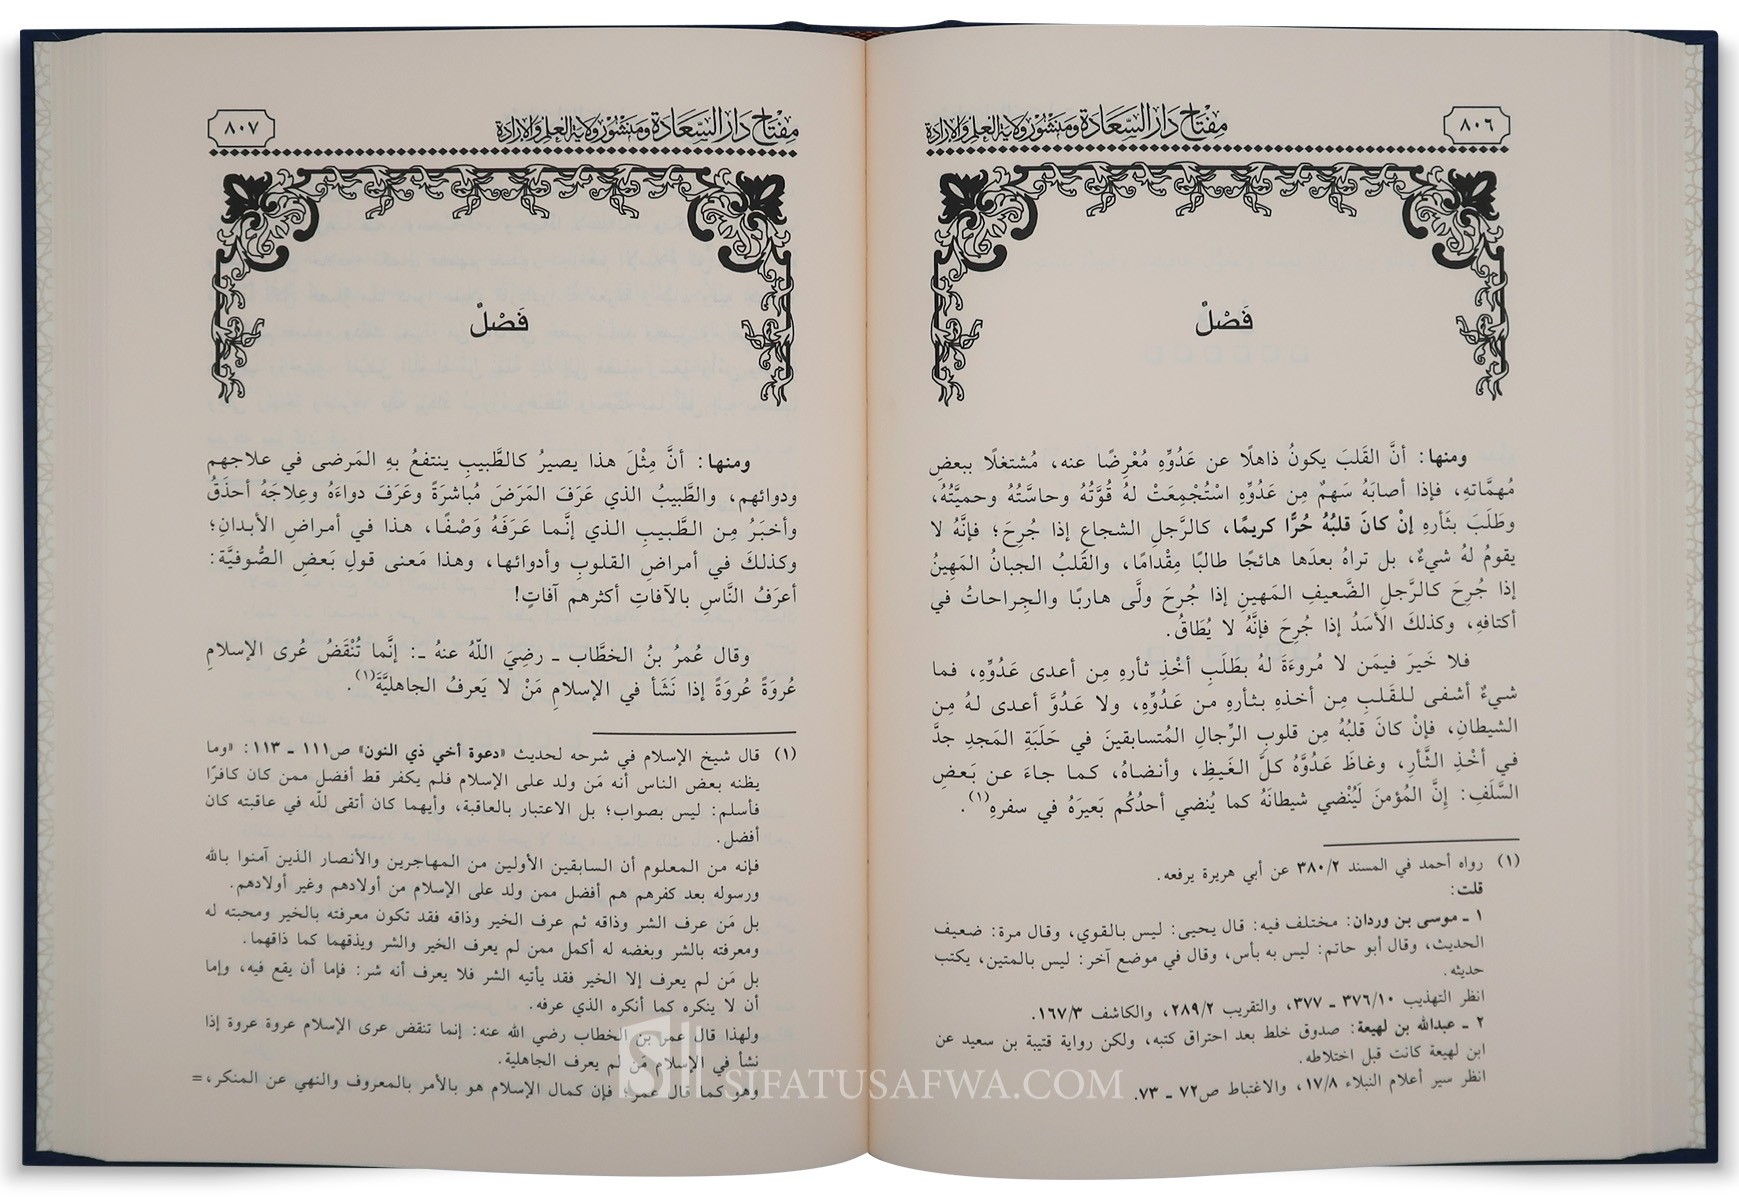 مفتاح دار السعادة ومنشور ولاية العلم والإرادة
٨٠٦
فَصْلٌ
ومنها: أنَّ القَلبَ يكونُ ذاهلًا عن عَدُوِّهِ مُعْرِضًا عنه، مُشتغلًا ببعضِ
مُهمَّاتهِ، فإذا أصابَهُ سَهمٌ مِن عَدُوِّهِ اسْتُجْمِعَتْ لهُ قُوَّتُهُ وحاسَّتُهُ وحميَّتُهُ،
وطَلَبَ بثَأرهِ إنْ كانَ قلبُهُ حُرًّا كريمًا، كالرَّجلِ الشجاعِ إذا جُرِحَ؛ فإنَّهُ لا
يقومُ لهُ شيءٌ، بل تراهُ بعدَها هائجًا طالبًا مِقْدامًا، والقَلبُ الجبانُ المَهِينُ
إذا جُرِحَ كالرَّجلِ الضَّعيفِ المَهينِ إذا جُرحَ ولَّى هاربًا والجِراحاتُ في
أكتافهِ، وكذلكَ الأسَدُ إذا جُرحَ فإنَّهُ لا يُطَاقُ.
فلا خَيرَ فيمَن لا مُروءَةَ لهُ بطَلَبِ أخْذِ ثأرهِ مِن أعدى عَدُوِّهِ، فما
شيءٌ أشفى للقَلبِ مِن أخذهِ بثأرهِ من عَدُوِّهِ، ولا عَدُوَّ أعدى لهُ مِن
الشيطانِ، فإنْ كانَ قلبُهُ مِن قلوبِ الرِّجالِ المُتسابقينَ في حَلَبَةِ المَجدِ جدَّ
في أخْذِ الثَّأرِ، وغاظَ عَدُوَّهُ كلَّ الغَيظِ، وأنضاهُ، كما جاءَ عن بَعضِ
السَّلَفِ: إنَّ المُؤمنَ لَيُنْضي شيطانَهُ كما يُنضي أحدُكُم بَعيرَهُ في سفرهِ(١).
(١) رواه أحمد في المسند ٣٨٠/٢ عن أبي هريرة يرفعه.
قلت:
١ ـ موسى بن وردان: مختلف فيه: قال يحيى: ليس بالقوي، وقال مرة: ضعيف
الحديث، وقال أبو حاتم: ليس به بأس، وقال في موضع آخر: ليس بالمتين، يكتب
حديثه.
انظر التهذيب ٣٧٦/١٠ ـ ٣٧٧، والتقريب ٢٨٩/٢، والكاشف ١٦٧/٣.
٢ ـ عبدالله بن لهيعة: صدوق خلط بعد احتراق كتبه، ولكن رواية قتيبة بن سعيد عن
ابن لهيعة كانت قبل اختلاطه.
انظر سير أعلام النبلاء ١٧/٨، والاغتباط ص٧٢ ـ ٧٣.
مفتاح دار السعادة ومنشور ولاية العلم والإرادة
٨٠٧
فَصْلٌ
ومنها: أنَّ مِثْلَ هذا يصيرُ كالطَّبيبِ ينتفعُ بهِ المَرضى في علاجهم
ودوائهم، والطَّبيبُ الذي عَرَفَ المَرَضَ مُباشرَةً وعَرَفَ دواءَهُ وعِلاجَهُ أحذَقُ
وأخبَرُ مِن الطَّبيبِ الذي إنَّما عَرَفَهُ وَصْفًا، هذا في أمراضِ الأبدانِ؛
وكذلكَ في أمراضِ القلوبِ وأدوائها، وهذا مَعنى قولِ بَعضِ الصُّوفيَّة:
أعرَفُ النَّاسِ بالآفاتِ أكثرهم آفاتٍ!
وقال عُمرُ بنُ الخطَّاب ـ رضِيَ اللّهُ عنهُ ـ: إنَّما تُنْقَضُ عُرى الإسلامِ
عُروَةً عُروَةً إذا نَشَأ في الإسلامِ مَنْ لا يَعرفُ الجاهليَّةَ(١).
(١) قال شيخ الإسلام في شرحه لحديث «دعوة أخي ذي النون» ص١١١ ـ ١١٣: «وما
يظنه بعض الناس أنه مَن ولد على الإسلام فلم يكفر قط أفضل ممن كان كافرًا
فأسلم: ليس بصواب؛ بل الاعتبار بالعاقبة، وأيهما كان أتقى للّه في عاقبته كان
أفضل.
فإنه من المعلوم أن السابقين الأولين من المهاجرين والأنصار الذين آمنوا بالله
ورسوله بعد كفرهم هم أفضل ممن ولد على الإسلام من أولادهم وغير أولادهم.
بل مَن عرف الشر وذاقه ثم عرف الخير وذاقه فقد تكون معرفته بالخير ومحبته له
ومعرفته بالشر وبغضه له أكمل ممن لم يعرف الخير والشر ويذقهما كما ذاقهما.
بل مَن لم يعرف إلا الخير فقد يأتيه الشر فلا يعرف أنه شر: فإما أن يقع فيه، وإما
أن لا ينكره كما أنكره الذي عرفه.
ولهذا قال عمر بن الخطاب رضي الله عنه: إنما تنقض عرى الإسلام عروة عروة إذا
نشأ في الإسلام مَن لم يعرف الجاهلية.
وهو كما قال عمر؛ فإن كمال الإسلام هو بالأمر بالمعروف والنهي عن المنكر، =
SIFATUSAFWA.COM